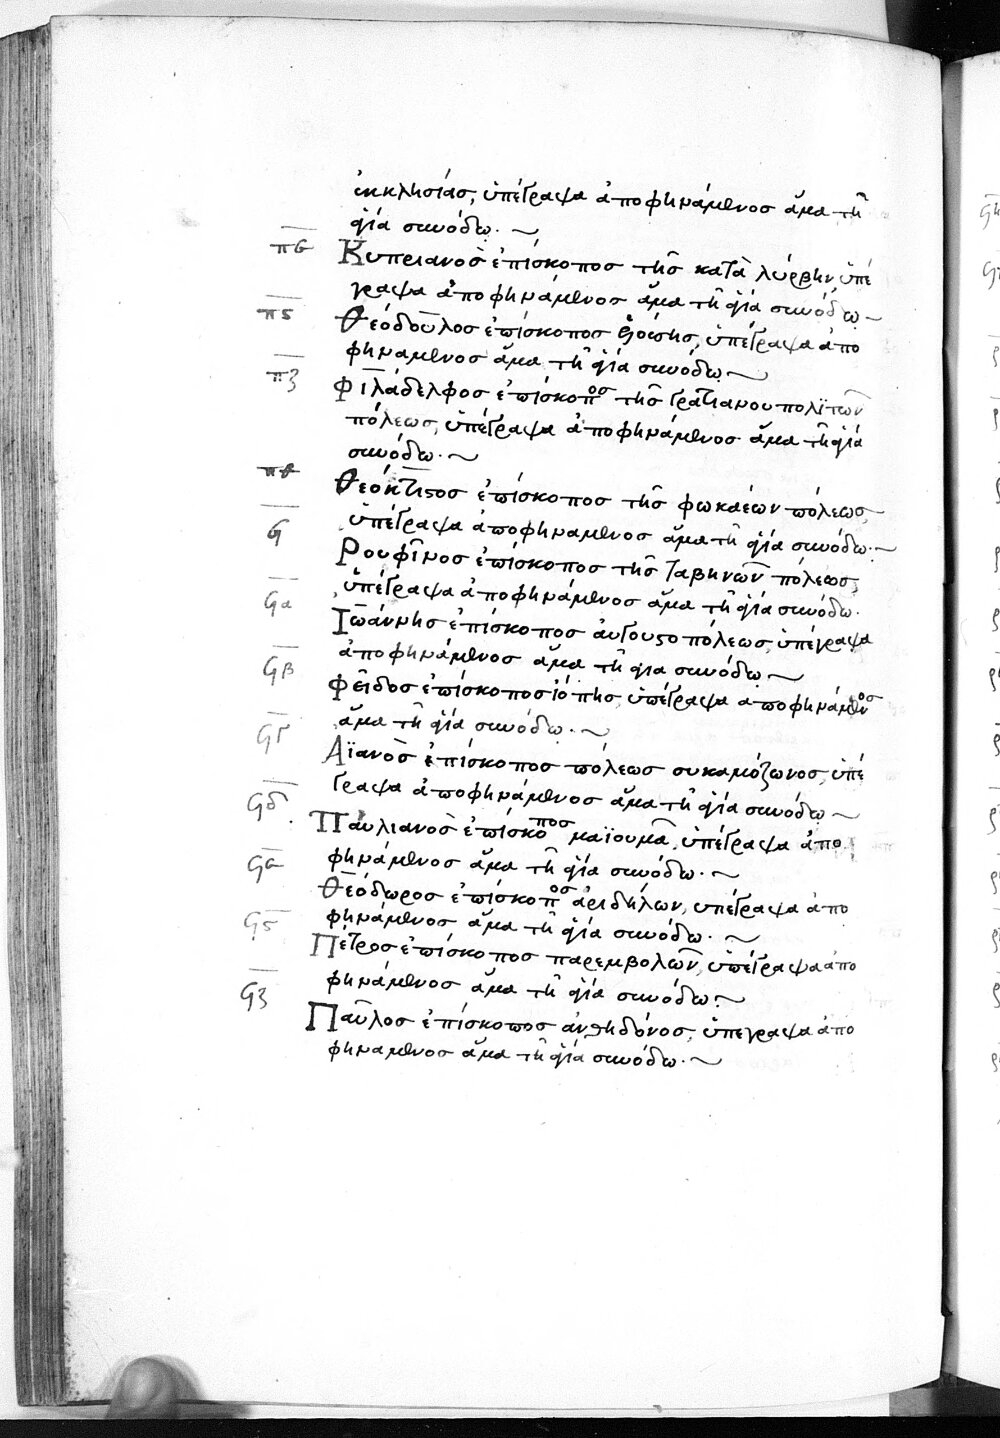 ἐκκλησίας, ὑπέγραψα ἀποφηνάμενος ἅμα τῆ
ἁγία συνόδω.
πε Κυπριανὸς ἐπίσκοπος τῆς κατὰ λύρβην, ὑπέ
γραψα ἀποφηνάμενος ἅμα τῆ ἁγία συνόδω
πς Θεόδουλος ἐπίσκοπος ἐλούσης, ὑπέγραψα ἀπο
φηναμενος ἅμα τῆ ἁγία συνόδω
πζ Φιλάδελφος ἐπίσκοπος τῆς Γρατιανουπολϊτῶν
πόλεως, ὑπέγραψα ἀποφηνάμενος ἅμα τῆ ἁγία
συνόδω.
πθ Θεόκτιστος ἐπίσκοπος τῆς φωκαέων πόλεως
ὑπέγραψα ἀποφηναμενος ἅμα τῆ ἁγία συνόδω.
ϟ Ρουφῖνος ἐπίσκοπος τῆς Ταβηνῶν πόλεως,
ὑπέγραψα ἀποφηνάμενος ἅμα τῆ ἁγία συνόδω.
ϟα Ἰωάννης ἐπίσκοπος αὐγουστοπόλεως, ὑπέγραψα
ἀποφηνάμενος ἅμα τῆ ἁγια συνόδω
ϟβ Φεῖδος ἐπίσκοπος ἰόπης, ὑπέγραψα αποφηνάμενος
ἅμα τῆ ἁγία συνόδω.
ϟγ Αϊανὸς ἐπίσκοπος πόλεως συκαμάζωνος, ὑπέ
γραψα ἀποφηνάμενος ἅμα τῆ ἁγία συνόδω
ϟδ Παυλιανὸς ἐπίσκοπος μαϊουμᾶ, ὑπέγραψα ἀπο
φηνάμενος ἅμα τῆ ἁγία συνόδω.
ϟε Θεόδωρος ἐπίσκοπος ἀριδήλων, υπέγραψα ἀπο
φηνάμενος ἅμα τῆ ἁγία συνόδω.
ϟς Πέτρος ἐπίσκοπος παρεμβολῶν, ὑπέγραψα ἀπο
φηνάμενος ἅμα τῆ ἁγία συνόδω.
ϟζ Παῦλος ἐπίσκοπος ἀνθηδόνος, ὑπεγραψα ἀπο
φηναμενος ἅμα τῆ ἁγία συνόδω.